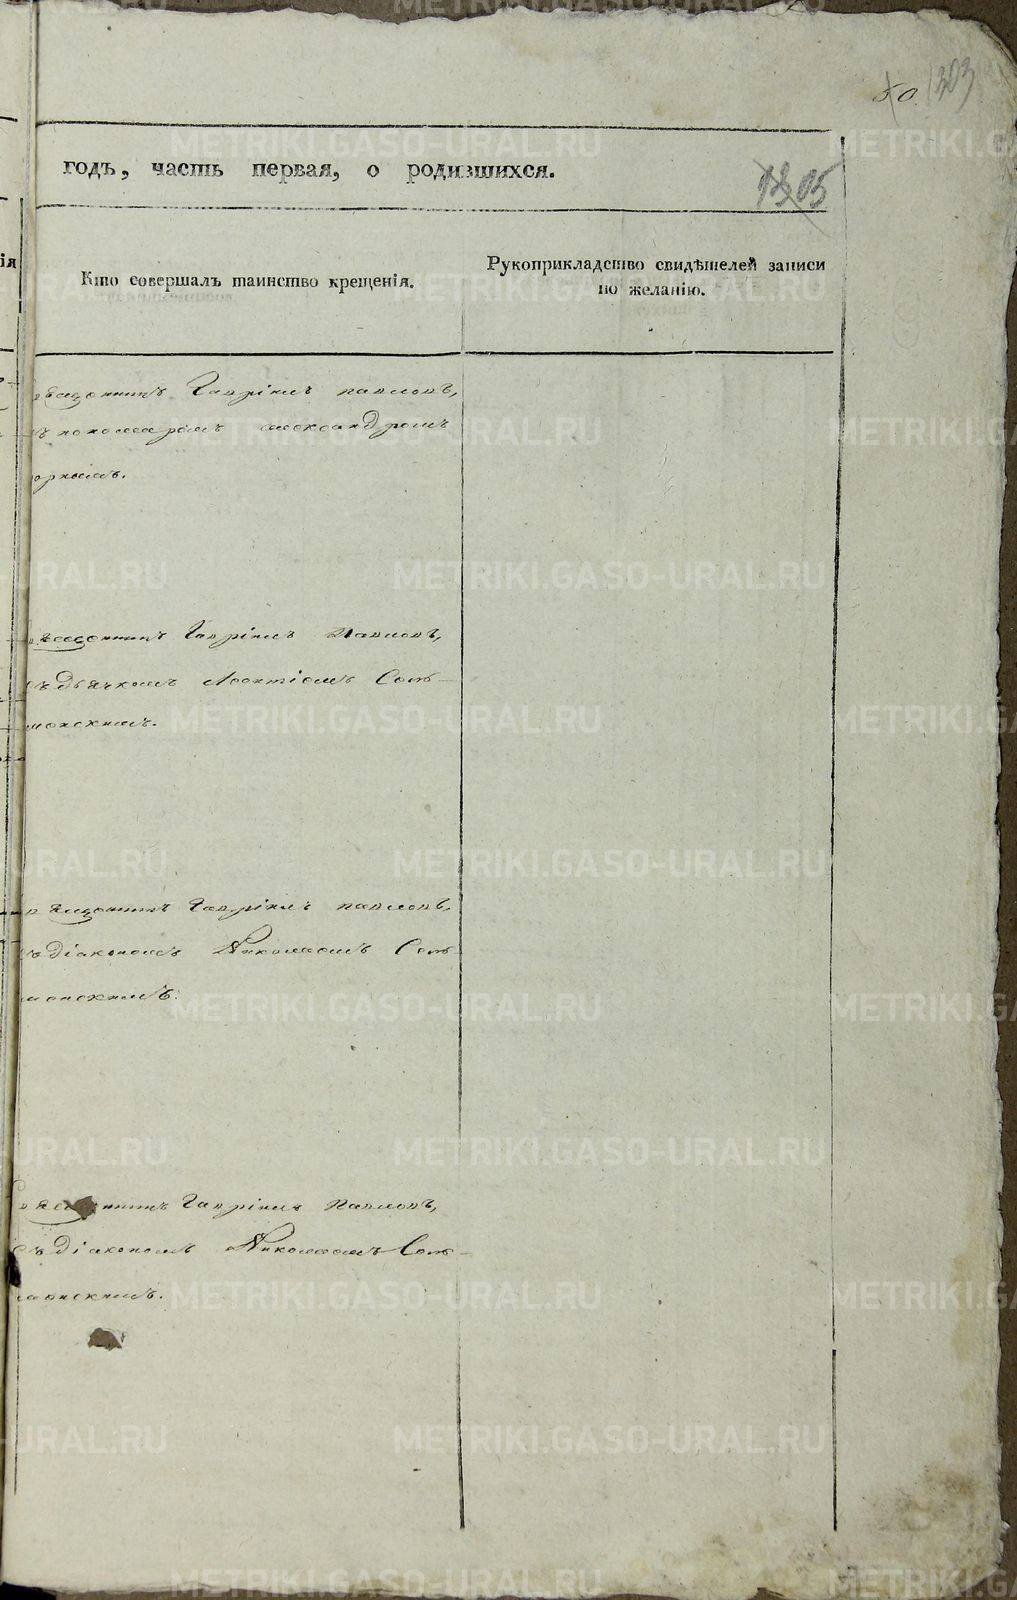 50 303
годъ, часть первая, о родившихся.
1305
ія
Кто совершалъ таинство крещенія.
Рукоприкладство свидѣтелей записи
по желанію.
Священникъ Гавріилъ Павловъ,
съ пономаремъ Александромъ
орнымъ.
Священникъ Гавріилъ Павловъ,
съ Дьячкомъ Леонтіемъ Соло-
монскимъ.
Священникъ Гавріилъ Павловъ,
съ Діакономъ Николаемъ Соло-
монскимъ.
Священникъ Гавріилъ Павловъ,
съ Діакономъ Николаемъ Соло-
монскимъ.
METRIKI.GASO-URAL.RU